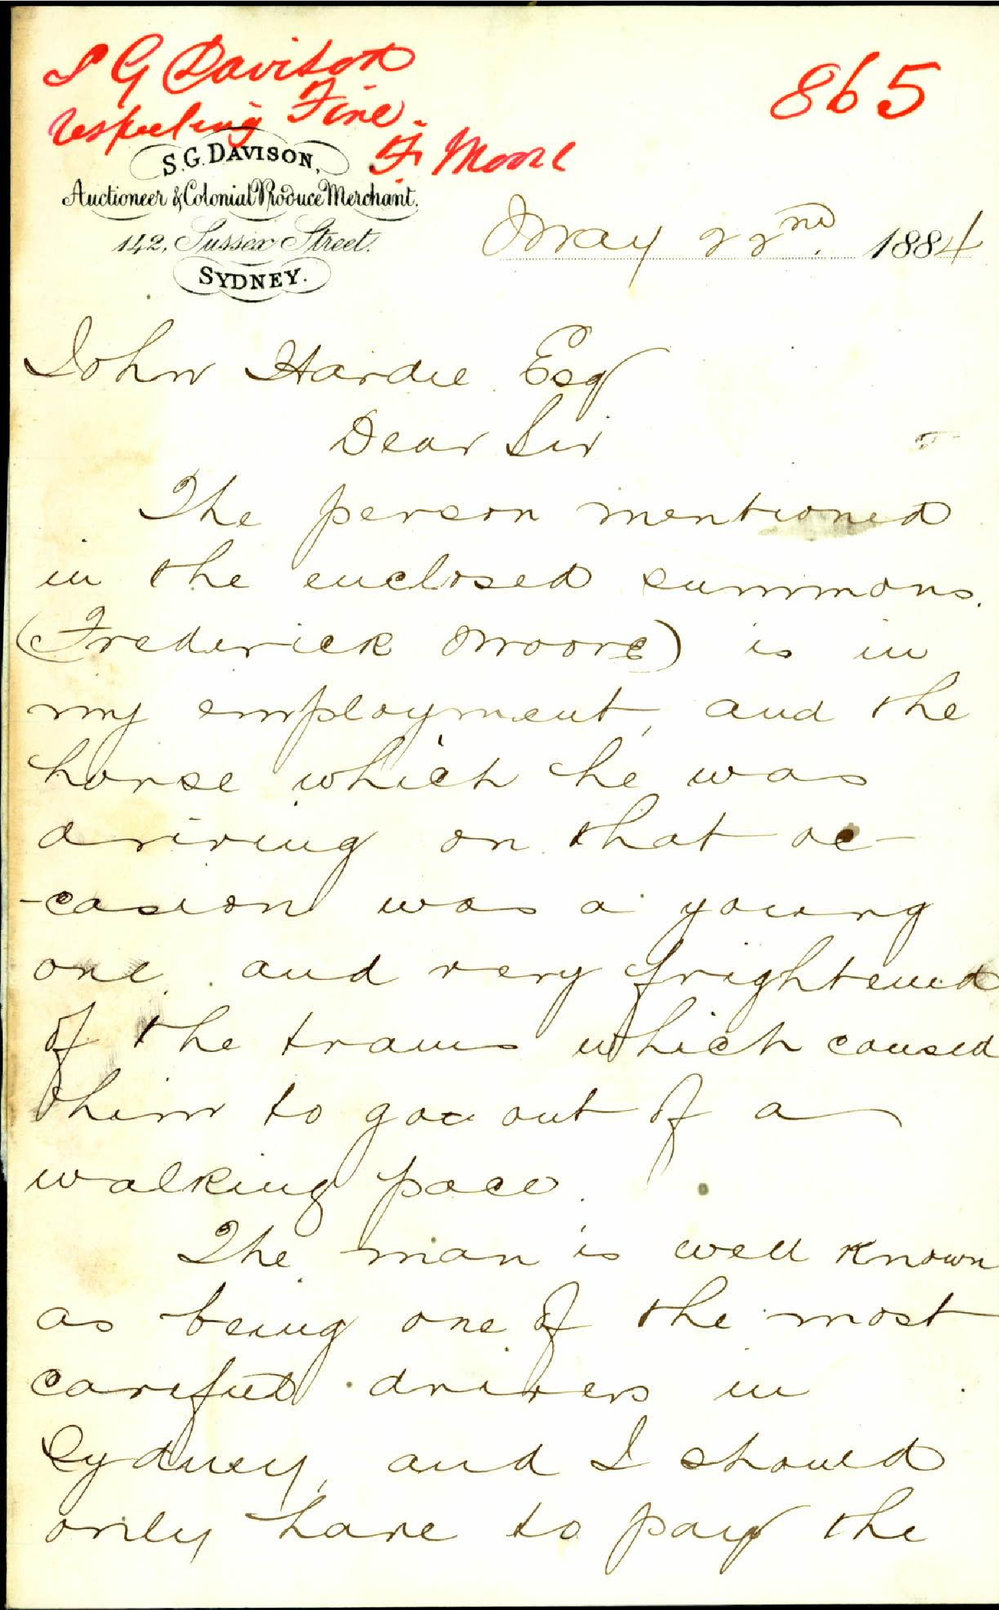 S G Davison
respecting Fine.
F. Moore
865
S.G. DAVISON,
Auctioneer & Colonial Produce Merchant.
142, Sussex Street.
SYDNEY.
May 22nd. 1884
John Hardie Esq
Dear Sir
The person mentioned
in the enclosed summons.
(Frederick Moore) is in
my employment, and the
horse which he was
driving on that oc-
-casion was a young
one and very frightened
of the trams which caused
him to go out of a
walking pace.
The man is well known
as being one of the most
careful drivers in
Sydney, and I should
only have to pay the